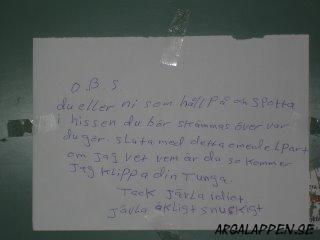 O.B.S.
du eller ni som håll på och spotta
i hissen du bör skämmas över var
du gör. sluta med detta omedelbart
om jag vet vem är du så kommer
jag klippa din Tunga.
Tack jävla idiot
jävla äkligt snuskigt
ARGALAPPEN.SE